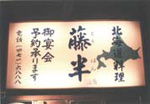 北海道料理
藤半
御宴会
予約承ります